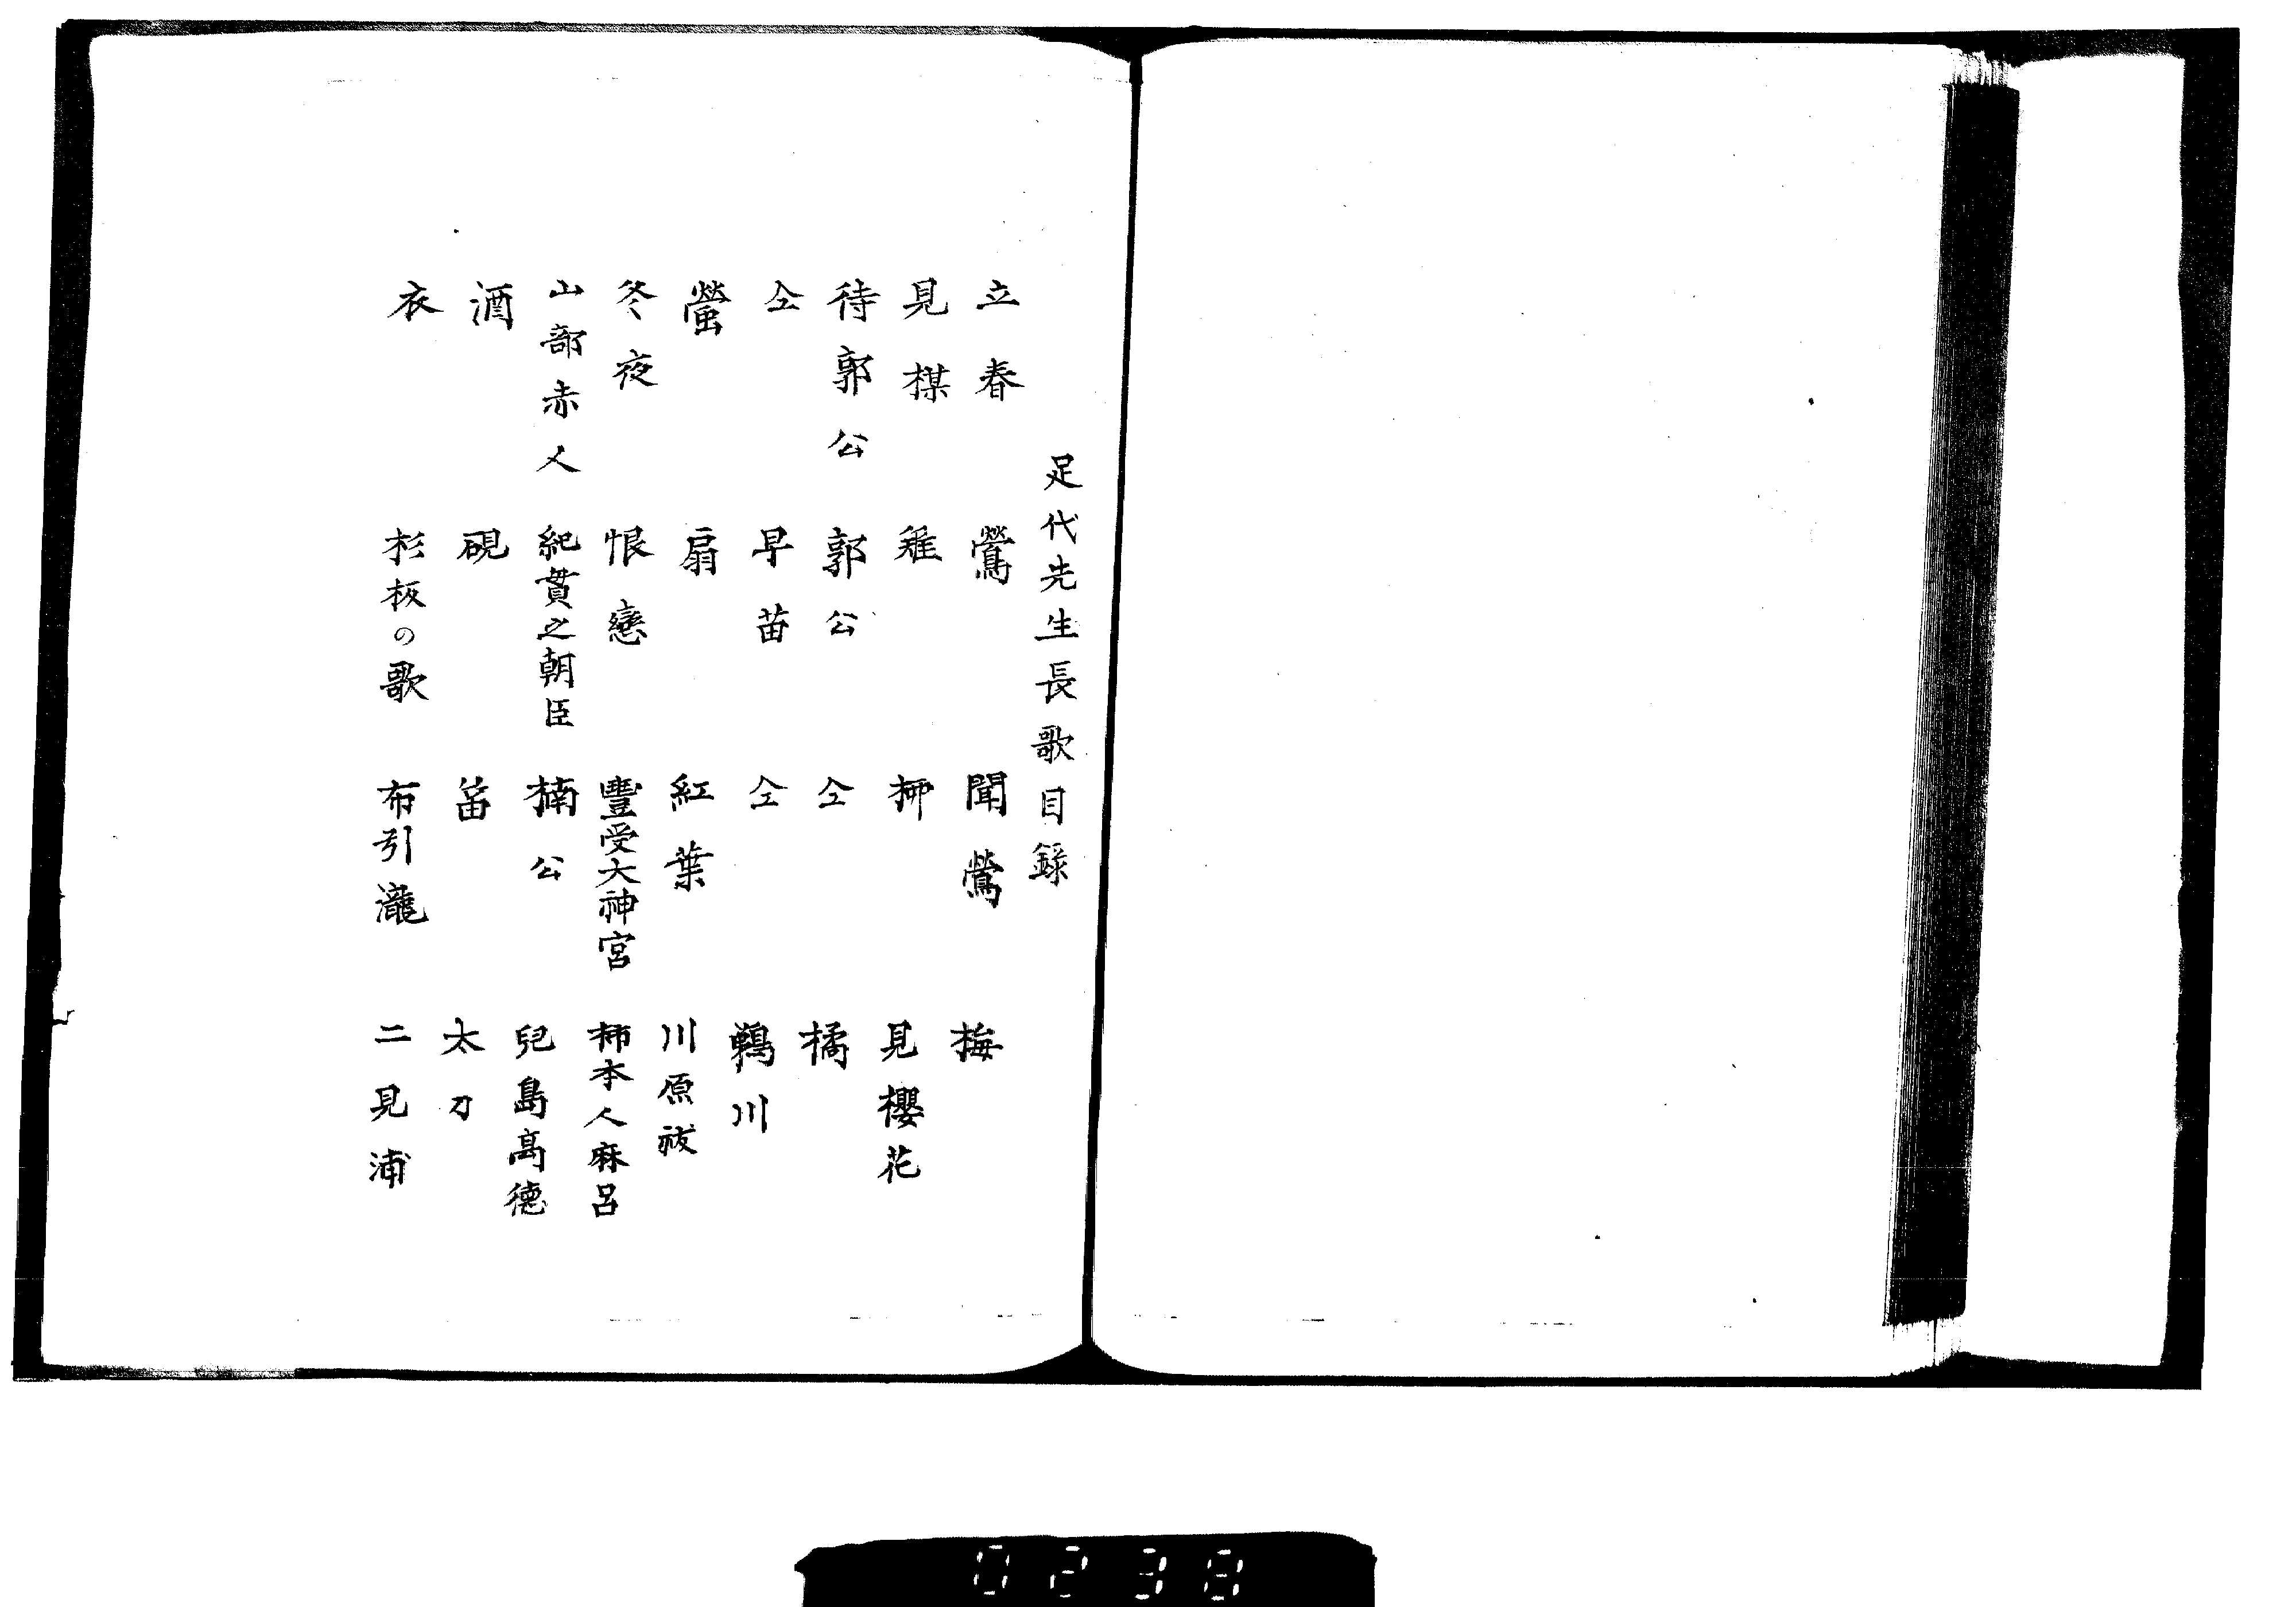 足代先生長歌目録
立春 鶯 聞鶯 梅
見楳 雉 柳 見櫻花
待郭公 郭公 仝 橘
仝 早苗 仝 鵜川
螢 扇 紅葉 川原祓
冬夜 恨戀 豐受大神宮 柿本人麻呂
山部赤人 紀貫之朝臣 楠公 兒島髙德
酒 硯 笛 太刀
衣 杉板の歌 布引瀧 二見浦
0238